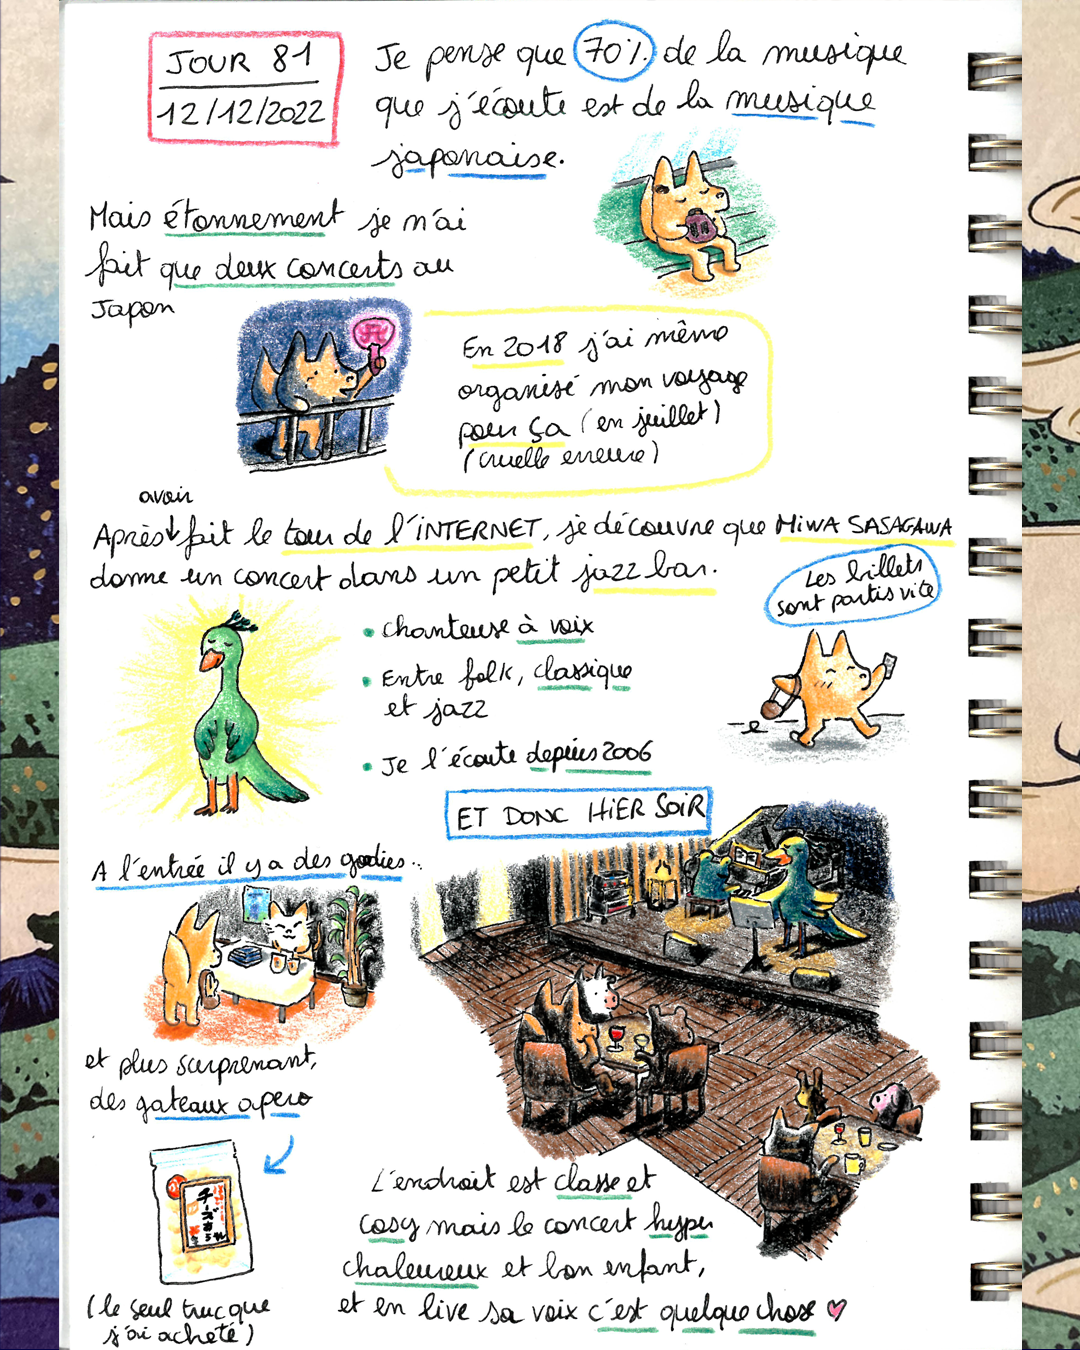 JOUR 81
12/12/2022
Je pense que 70% de la musique
que j'écoute est de la musique
japonaise.
Mais étonnement je n'ai
fait que deux concerts au
Japon
En 2018 j'ai même
organisé mon voyage
pour ça (en juillet)
(cruelle erreure)
avoir
Après fait le tour de l'INTERNET, je découvre que MIWA SASAGAWA
donne un concert dans un petit jazz bar.
Les billets
sont partis vite
• chanteuse à voix
• Entre folk, classique
et jazz
• Je l'écoute depuis 2006
ET DONC HIER SOIR
A l'entrée il y a des goodies..
et plus surprenant,
des gateaux apero
チーズおかき
(le seul truc que
j'ai acheté)
L'endroit est classe et
cosy mais le concert hyper
chaleureux et bon enfant,
et en live sa voix c'est quelque chose ♡